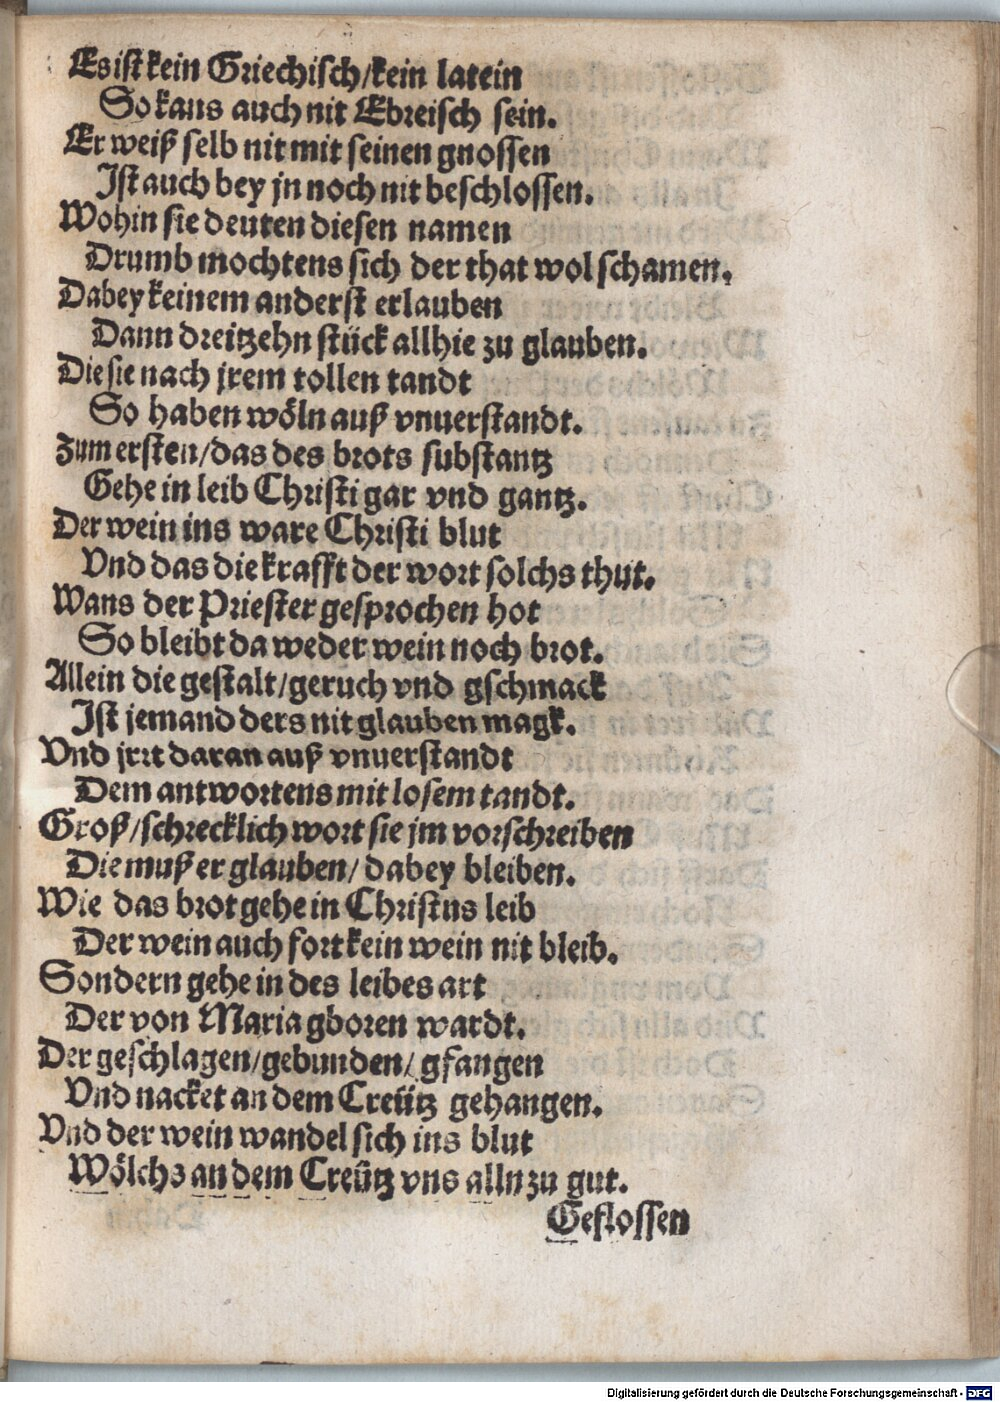 Es ist kein Griechisch/kein latein
So kans auch nit Ebreisch sein.
Er weiß selb nit mit seinen gnossen
Ist auch bey jn noch nit beschlossen.
Wohin sie deuten diesen namen
Drumb mochtens sich der that wol schamen.
Dabey keinem anderst erlauben
Dann dreitzehn stück allhie zu glauben.
Die sie nach jrem tollen tandt
So haben wöln auß vnuerstandt.
Zum ersten/das des brots substantz
Gehe in leib Christi gar vnd gantz.
Der wein ins ware Christi blut
Vnd das die krafft der wort solchs thut.
Wans der Priester gesprochen hot
So bleibt da weder wein noch brot.
Allein die gestalt/geruch vnd gschmack
Ist jemand ders nit glauben magk.
Vnd jrrt daran auß vnuerstandt
Dem antwortens mit losem tandt.
Groß/schrecklich wort sie jm vorschreiben
Die muß er glauben/dabey bleiben.
Wie das brot gehe in Christus leib
Der wein auch fort kein wein nit bleib.
Sondern gehe in des leibes art
Der von Maria gboren wardt.
Der geschlagen/gebunden/gfangen
Vnd nacket an dem Creütz gehangen.
Vnd der wein wandel sich ins blut
Wölchs an dem Creütz vns alln zu gut.
Geflossen
Digitalisierung gefördert durch die Deutsche Forschungsgemeinschaft - DFG